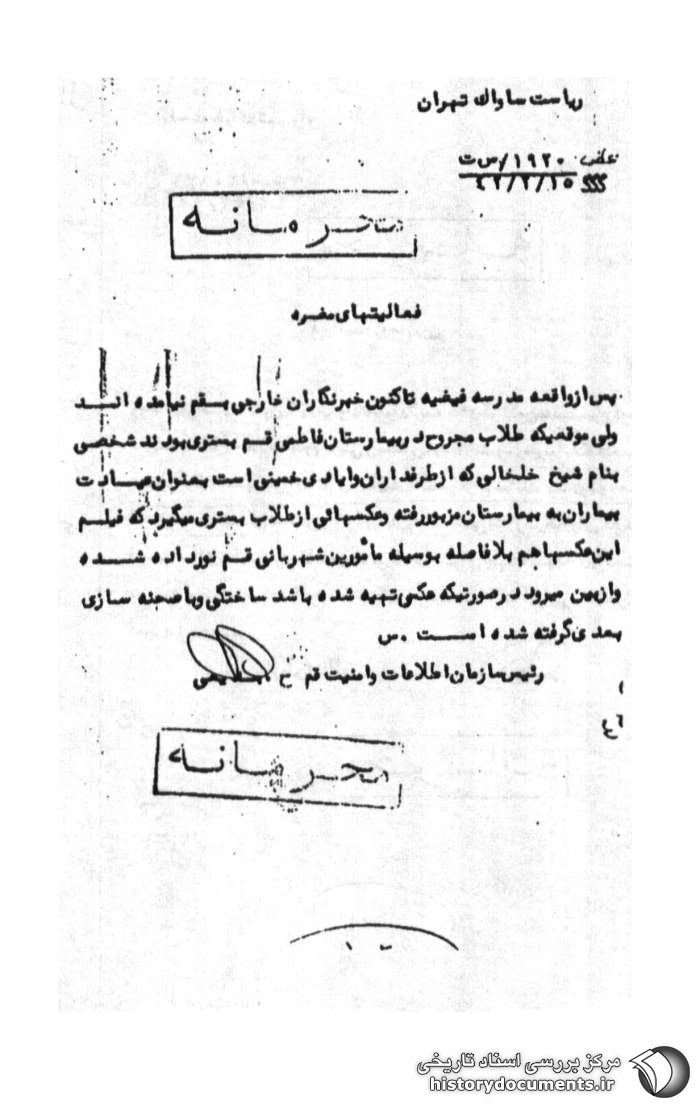 ریاست ساواک تهران
عطف ۱۹۲۰/س ت
۴۲/۲/۱۵
محرمانه
فعالیتهای مضره
پس از واقعه مدرسه فیضیه تاکنون خبرنگاران خارجی بقم نیامده اند
ولی موقعیکه طلاب مجروح در بیمارستان فاطمی قم بستری بودند شخصی
بنام شیخ خلخالی که از طرفداران وایادی خمینی است بعنوان عیادت
بیماران به بیمارستان مزبور رفته وعکسهائی از طلاب بستری میگیرد که فیلم
این عکسها هم بلافاصله بوسیله مأمورین شهربانی قم نور داده شده
وازبین میرود در صورتیکه عکسی تهیه شده باشد ساختگی وبا صحنه سازی
بعدی گرفته شده است .س
رئیس سازمان اطلاعات وامنیت قم ح
محرمانه
مرکز بررسی اسناد تاریخی
historydocuments.ir